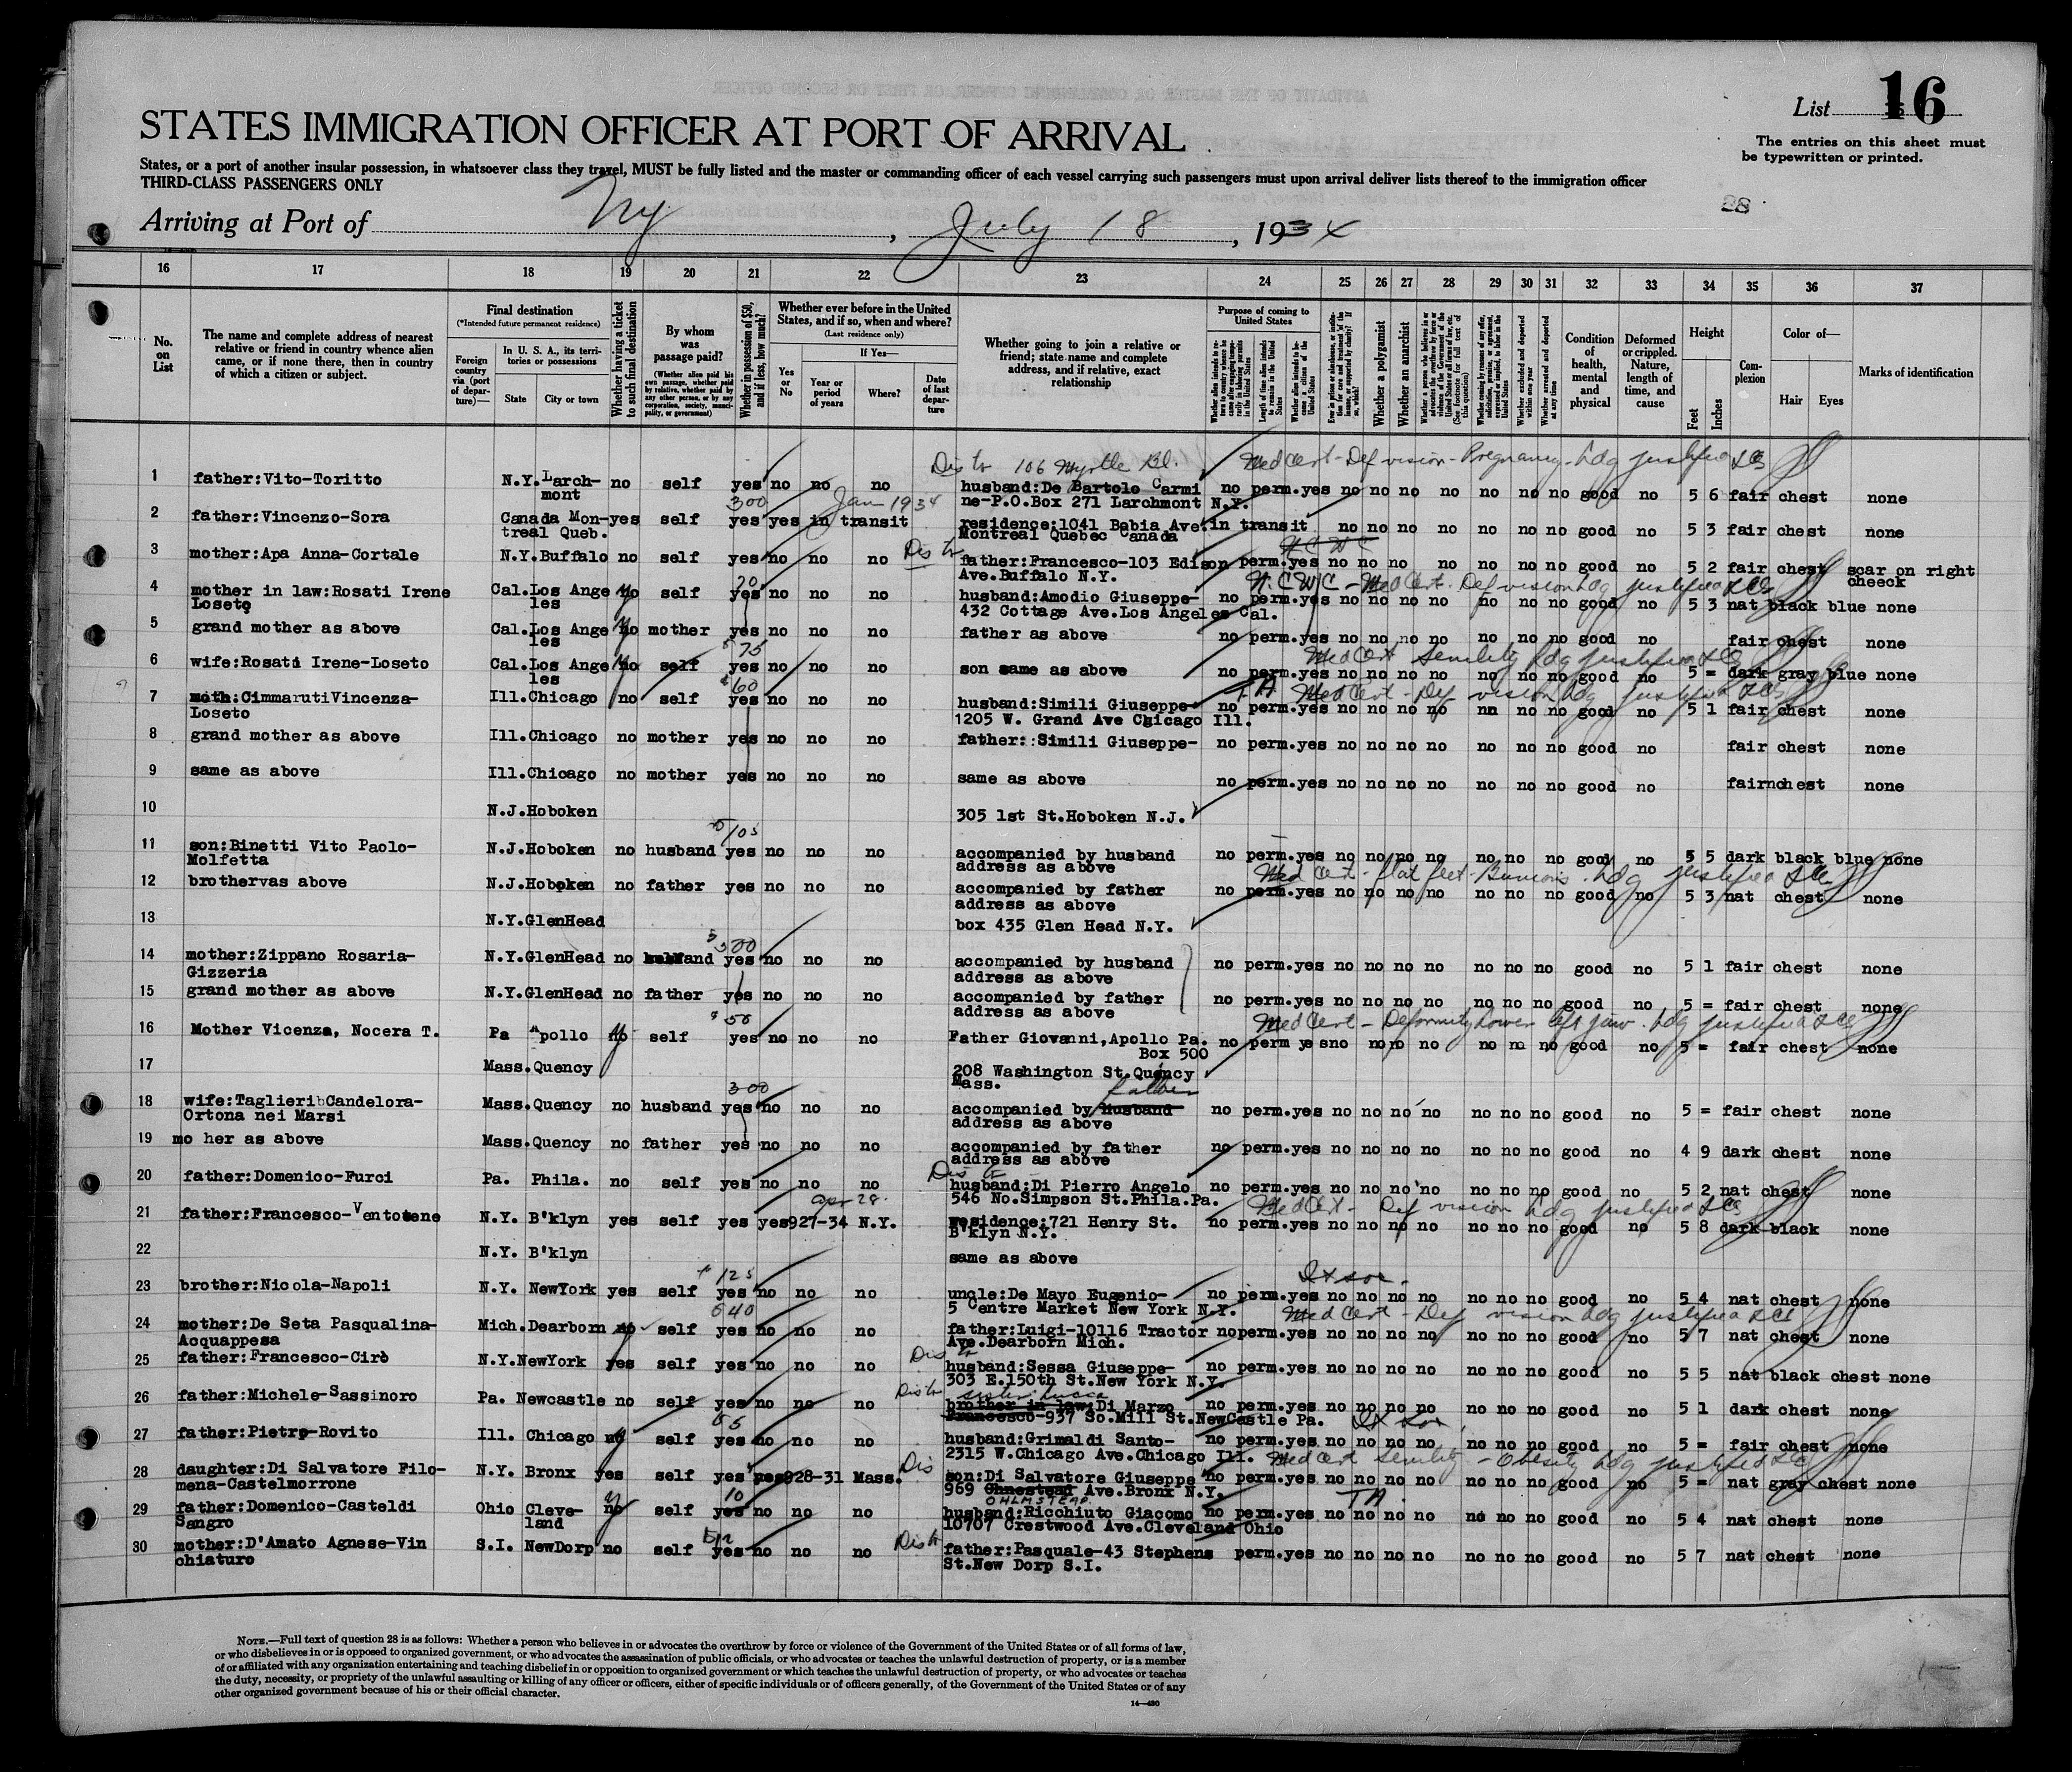 List 16
STATES IMMIGRATION OFFICER AT PORT OF ARRIVAL
The entries on this sheet must
be typewritten or printed.
States, or a port of another insular possession, in whatsoever class they travel, MUST be fully listed and the master or commanding officer of each vessel carrying such passengers must upon arrival deliver lists thereof to the immigration officer
THIRD-CLASS PASSENGERS ONLY
28
Arriving at Port of Ny, July 18, 1934
16 17 18 19 20 21 22 23 24 25 26 27 28 29 30 31 32 33 34 35 36 37
No. on List
The name and complete address of nearest relative or friend in country whence alien came, or if none there, then in country of which a citizen or subject.
Final destination
(*Intended future permanent residence)
Foreign country via (port of departure)—
In U. S. A., its territories or possessions
State
City or town
Whether having a ticket to such final destination
By whom was passage paid?
(Whether alien paid his own passage, whether paid by relative, whether paid by any other person, or by any corporation, society, municipality, or government)
Whether in possession of $50, and if less, how much?
Whether ever before in the United States, and if so, when and where?
(Last residence only)
Yes or No
If Yes—
Year or period of years
Where?
Date of last departure
Whether going to join a relative or friend; state name and complete address, and if relative, exact relationship
Purpose of coming to United States
Length of time alien intends to remain in the United States
Whether alien intends to become a citizen of the United States
Whether a polygamist
Whether an anarchist
Whether excluded and deported within one year
Whether arrested and deported at any time
Condition of health, mental and physical
Deformed or crippled. Nature, length of time, and cause
Height
Feet
Inches
Complexion
Color of—
Hair
Eyes
Marks of identification
Distr 106 Myrtle Bl. Med Cert - Def vision - Pregnancy - hdg justified
1 father:Vito-Toritto N.Y. Larch- no self yes no no no husband:De Bartolo Carmi no perm.yes no no no no no no no good no 5 6 fair chest none
mont 300 Jan 1934 ne-P.O.Box 271 Larchmont N.Y.
2 father:Vincenzo-Sora Canada Mon- yes self yes yes in transit residence:1041 Babia Ave. in transit no no no no no no no good no 5 3 fair chest none
treal Queb. Montreal Quebec Canada
3 mother:Apa Anna-Cortale N.Y. Buffalo no self yes no no no Distr father:Francesco-103 Edison perm.yes no no no no no no no good no 5 2 fair chest scar on right
Ave.Buffalo N.Y. cheeck
70 Med Cert. Def vision hdg justified
4 mother in law:Rosati Irene Cal. Los Ange no self yes no no no husband:Amodio Giuseppe- no perm.yes no no no no no no no good no 5 3 nat black blue none
Loseto les 432 Cottage Ave.Los Angeles Cal.
5 grand mother as above Cal. Los Ange no mother yes no no no father as above no perm.yes no no no no no no no good no fair chest none
les 75 Med Cert Senility hdg justified
6 wife:Rosati Irene-Loseto Cal. Los Ange no self yes no no no son same as above no perm.yes no no no no no no no good no 5 = dark gray blue none
les 60 T A Med Cert - Def vision hdg justified
7 moth:CimmarutiVincenza- Ill. Chicago no self yes no no no husband:Simili Giuseppe- no perm.yes no no no no no no no good no 5 1 fair chest none
Loseto 1205 W. Grand Ave Chicago Ill.
8 grand mother as above Ill. Chicago no mother yes no no no father::Simili Giuseppe- no perm.yes no no no no no no no good no fair chest none
9 same as above Ill. Chicago no mother yes no no no same as above no perm.yes no no no no no no no good no fair chest none
10 N.J. Hoboken 305 1st St.Hoboken N.J.
105
11 son:Binetti Vito Paolo- N.J. Hoboken no husband yes no no no accompanied by husband no perm.yes no no no no no no no good no 5 5 dark black blue none
Molfetta address as above Med Cert - flat feet - Bunions. hdg justified
12 brothervas above N.J. Hoboken no father yes no no no accompanied by father no perm.yes no no no no no no no good no 5 3 nat chest none
address as above
13 N.Y. GlenHead box 435 Glen Head N.Y.
300
14 mother:Zippano Rosaria- N.Y. GlenHead no husband yes no no no accompanied by husband no perm.yes no no no no no no no good no 5 1 fair chest none
Gizzeria address as above
15 grand mother as above N.Y. GlenHead no father yes no no no accompanied by father no perm.yes no no no no no no no good no 5 = fair chest none
address as above
$50 Med Cert - Deformity Lower left jaw. hdg justified
16 Mother Vicenza, Nocera T. Pa Apollo no self yes no no no Father Giovanni,Apollo Pa. no perm yes no no no no no no no good no 5 = fair chest none
Box 500
17 Mass. Quency 208 Washington St.Quency
Mass.
300 father
18 wife:Taglieri Candelora- Mass. Quency no husband yes no no no accompanied by husband no perm.yes no no no no no no no good no 5 = fair chest none
Ortona nei Marsi address as above
19 mo her as above Mass. Quency no father yes no no no accompanied by father no perm.yes no no no no no no no good no 4 9 dark chest none
address as above
20 father:Domenico-Furci Pa. Phila. no self yes no no no Distr husband:Di Pierro Angelo no perm.yes no no no no no no no good no 5 2 nat chest none
546 No.Simpson St.Phila.Pa.
apr 28. Med Cert - Def vision hdg justified
21 father:Francesco-Ventotene N.Y. B'klyn yes self yes yes 927-34 N.Y. residence:721 Henry St. no perm.yes no no no no no no no good no 5 8 dark black none
B'klyn N.Y.
22 N.Y. B'klyn same as above
125
23 brother:Nicola-Napoli N.Y. NewYork yes self yes no no no uncle:De Mayo Eugenio- no perm.yes no no no no no no no good no 5 4 nat chest none
5 Centre Market New York N.Y.
40 Med Cert - Def vision hdg justified
24 mother:De Seta Pasqualina- Mich. Dearborn no self yes no no no father:Luigi-10116 Tractor no perm.yes no no no no no no no good no 5 7 nat chest none
Acquappesa Ave.Dearborn Mich.
25 father:Francesco-Cirò N.Y. NewYork yes self yes no no no Distr husband:Sessa Giuseppe- no perm.yes no no no no no no no good no 5 5 nat black chest none
303 E.150th St.New York N.Y.
26 father:Michele-Sassinoro Pa. Newcastle no self yes no no no Distr brother in law:Di Marzo no perm.yes no no no no no no no good no 5 1 dark chest none
sister Lucca
Francesco-937 So.Mill St.NewCastle Pa.
27 father:Pietro-Rovito Ill. Chicago no self yes no no no husband:Grimaldi Santo- no perm.yes no no no no no no no good no 5 = fair chest none
2315 W.Chicago Ave.Chicago Ill. Med Cert Senility - Obesity hdg justified
28 daughter:Di Salvatore Filo- N.Y. Bronx yes self yes yes 928-31 Mass. Dis son:Di Salvatore Giuseppe no perm.yes no no no no no no no good no 5 = nat gray chest none
mena-Castelmorrone 969 Ave.Bronx N.Y.
OHLMSTEAD.
10 T A.
29 father:Domenico-Casteldi Ohio Cleve- no self yes no no no husband:Ricchiuto Giacomo no perm.yes no no no no no no no good no 5 4 nat chest none
Sangro land 10707 Crestwood Ave.Cleveland Ohio
30 mother:D'Amato Agnese-Vin S.I. NewDorp no self yes no no no Distr father:Pasquale-43 Stephens perm.yes no no no no no no no good no 5 7 nat chest none
chiaturo St.New Dorp S.I.
NOTE.—Full text of question 28 is as follows: Whether a person who believes in or advocates the overthrow by force or violence of the Government of the United States or of all forms of law,
or who disbelieves in or is opposed to organized government, or who advocates the assassination of public officials, or who advocates or teaches the unlawful destruction of property, or is a member
of or affiliated with any organization entertaining and teaching disbelief in or opposition to organized government or which teaches the unlawful destruction of property, or who advocates or teaches
the duty, necessity, or propriety of the unlawful assaulting or killing of any officer or officers, either of specific individuals or of officers generally, of the Government of the United States or of any
other organized government because of his or their official character.
14—430